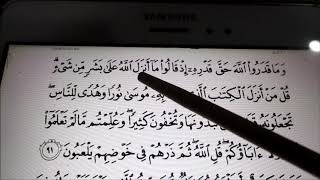 وَمَا قَدَرُوا۟ ٱللَّهَ حَقَّ قَدْرِهِۦٓ إِذْ قَالُوا۟ مَآ أَنزَلَ ٱللَّهُ عَلَىٰ بَشَرٍ مِّن شَىْءٍ ۗ
قُلْ مَنْ أَنزَلَ ٱلْكِتَٰبَ بِهِۦ مُوسَىٰ نُورًا وَهُدًى لِّلنَّاسِ ۖ
تَجْعَلُونَهُۥ تُبْدُونَهَا وَتُخْفُونَ كَثِيرًا ۖ وَعُلِّمْتُم مَّا لَمْ تَعْلَمُوٓا۟
ءَابَآؤُكُمْ ۖ قُلِ ٱللَّهُ ۖ ثُمَّ ذَرْهُمْ فِى خَوْضِهِمْ يَلْعَبُونَ ٩١